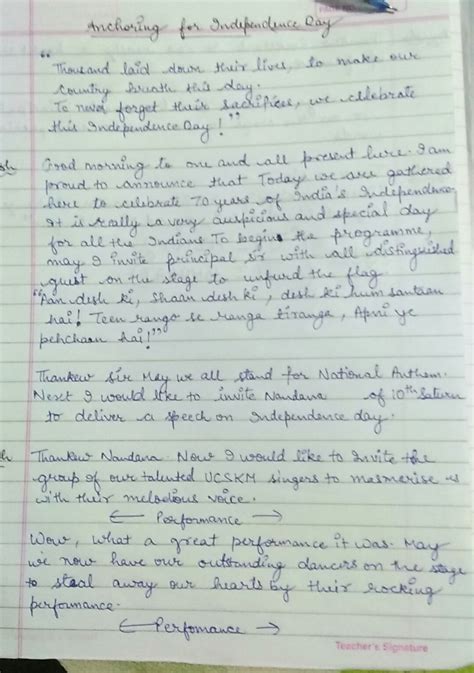 Anchoring for Independence Day
"Thousand laid down their lives, to make our
Country breath this day.
To never forget their sacrifices, we celebrate
this Independence Day!"
Good morning to one and all present here. I am
proud to announce that Today we are gathered
here to celebrate 70 years of India's Independence.
It is really a very auspicious and special day
for all the Indians To begin the programme,
may I invite principal sir with all distinguished
guest on the stage to unfurd the flag
"Aan desh ki, Shaan desh ki, desh ki hum santaan
hai! Teen rango se ranga tiranga, Apni ye
pehchaan hai!"
Thankew Sir May we all stand for National Anthem.
Next I would like to invite Nandana of 10th Saturn
to deliver a speech on Independence day.
Thankew Nandana. Now I would like to Invite the
group of our talented UCSKM singers to mesmerise us
with their melodious voice.
← Performance →
Wow, what a great performance it was. May
we now have our outstanding dancers on the stage
to steal away our hearts by their rocking
performance.
← Perfomance →
Teacher's Signature